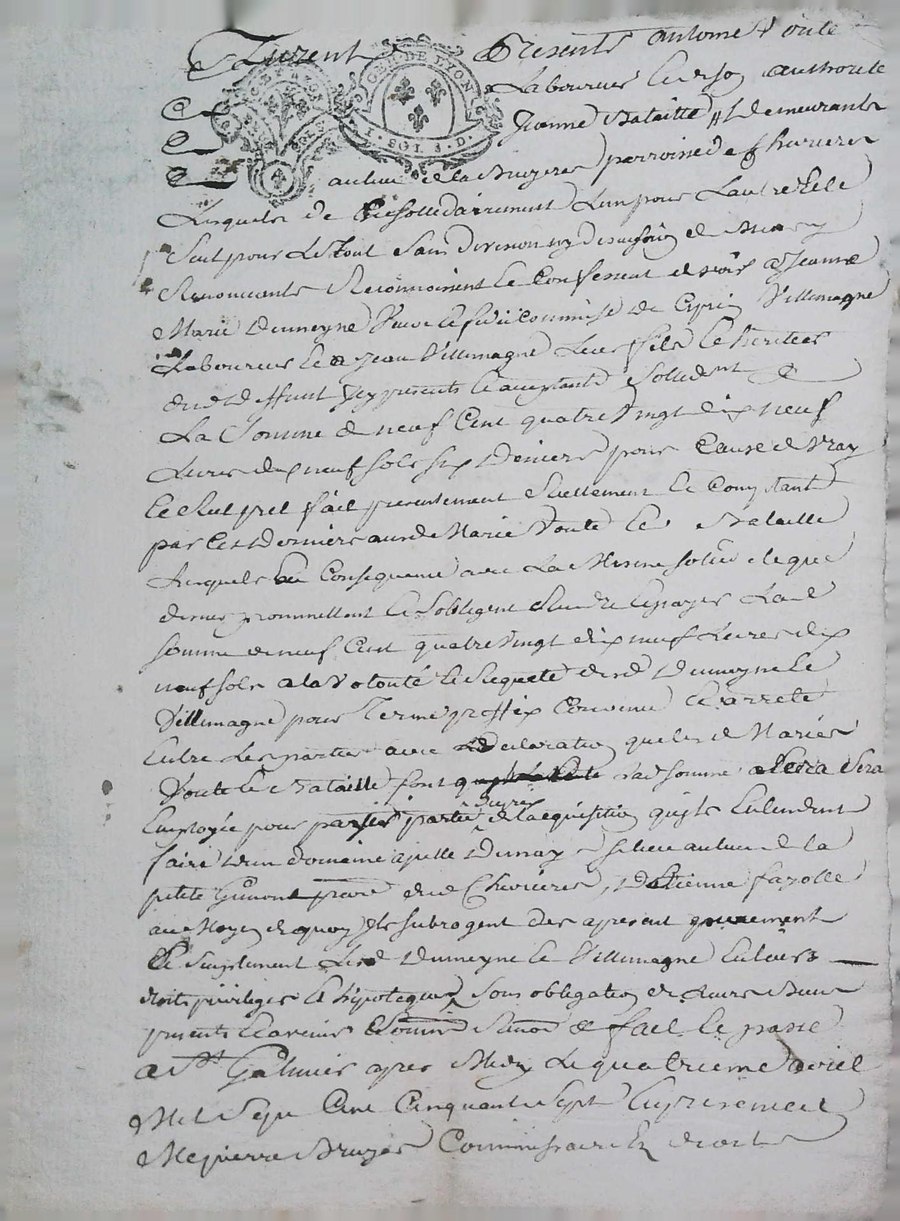 Furent Presents antoine Voute
GEN DE LYON
1. SOL 8. D.
Laboureur et authorité
Jeanne Bataille demeurants
au lieu de la Bruyere parroisse de Chevrieres
Lesquels de Gré solidairement L'un pour L'autre et
seul pour Le Tout sans division ny discution
Renonceants Reconnoissent et Confessent devoir a Jeanne
Marie Dumeyne Veuve et fideicommise de Villemagne
Laboureur et a Jean Villemagne Leur fils et heritier
dud deffunt Icy presents et acceptants solidnt
La Somme de neuf Cent quatre Vingt dix neuf
Livres dix neuf sols six Deniers pour Cause de Vray
et pret fait presentement reellement et Comptant
par Ces Derniers auxd Mariés Voute et Bataille
Lesquels en Consequence avec La Mesme que
dessus promettent et s'obligent rendre et payer Lad
somme de neuf Cent quatre Vingt dix neuf Livres dix
neuf sols a la Volonté et Requete desd Dumeyne et
Villemagne pour Terme preffix Convenu et arreté
Entre Les parties avec Declaration que les d Mariés
Voute et Bataille font lad somme sera
Employée pour partie de l'acquisition qu'ils Entendent
faire d'un domaine appellé Dunay au lieu de la
petite Gimond dud Chevrieres, d'Etienne fayolle
au Moyen de quoy ils subrogent des apresent
Lesd Dumeyne et Villemagne En leurs
droits privileges et hipoteques sous obligation de Leurs Biens
presents et avenir fait et passé
a St Galmier apres Midy Le quatrieme avril
Mil Sept Cent Cinquante Sept En presence
Me pierre Bruyer Commissaire